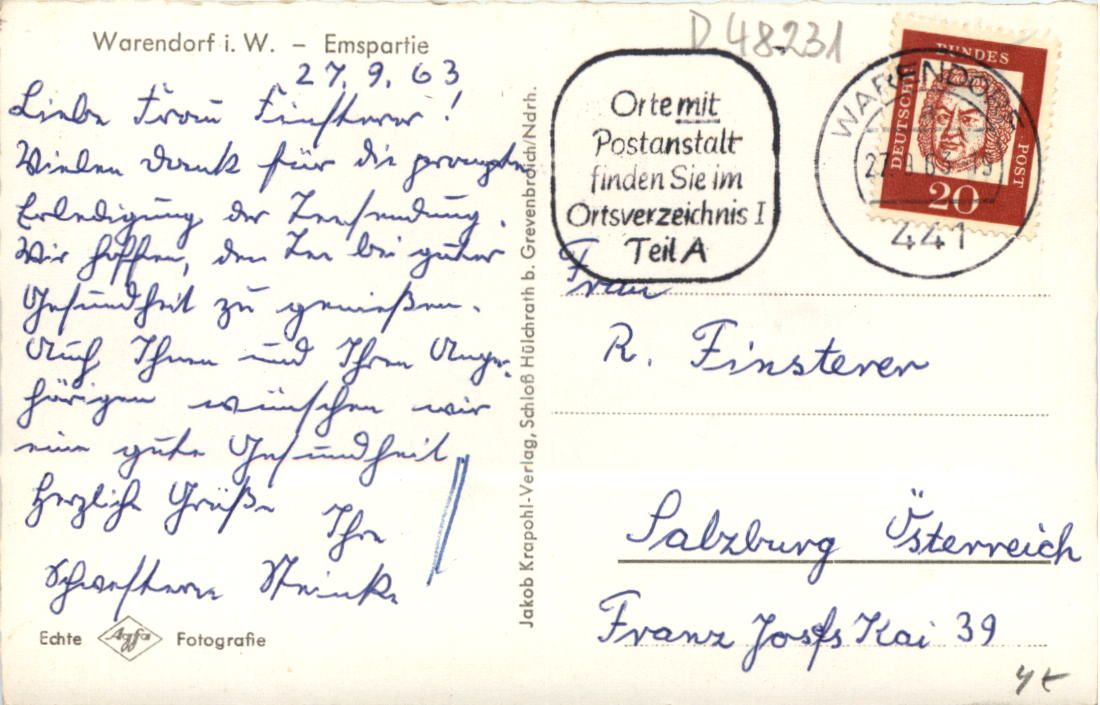 Warendorf i. W. – Emspartie
27. 9. 63
Liebe Frau Finsterer!
Vielen Dank für die prompte
Erledigung der Teesendung.
Wir hoffen, den Tee bei guter
Gesundheit zu genießen.
Auch Ihnen und Ihren Ange-
hörigen wünschen wir
eine gute Gesundheit
Herzliche Grüße
Ihre
Schwestern Steinke
Echte Agfa Fotografie
Jakob Krapohl-Verlag, Schloß Hülchrath b. Grevenbroich/Ndrh.
D 48231
Orte mit
Postanstalt
finden Sie im
Ortsverzeichnis I
Teil A
WARENDORF
441
DEUTSCHE BUNDESPOST
20
Frau
R. Finsterer
Salzburg Österreich
Franz Josefs Kai 39